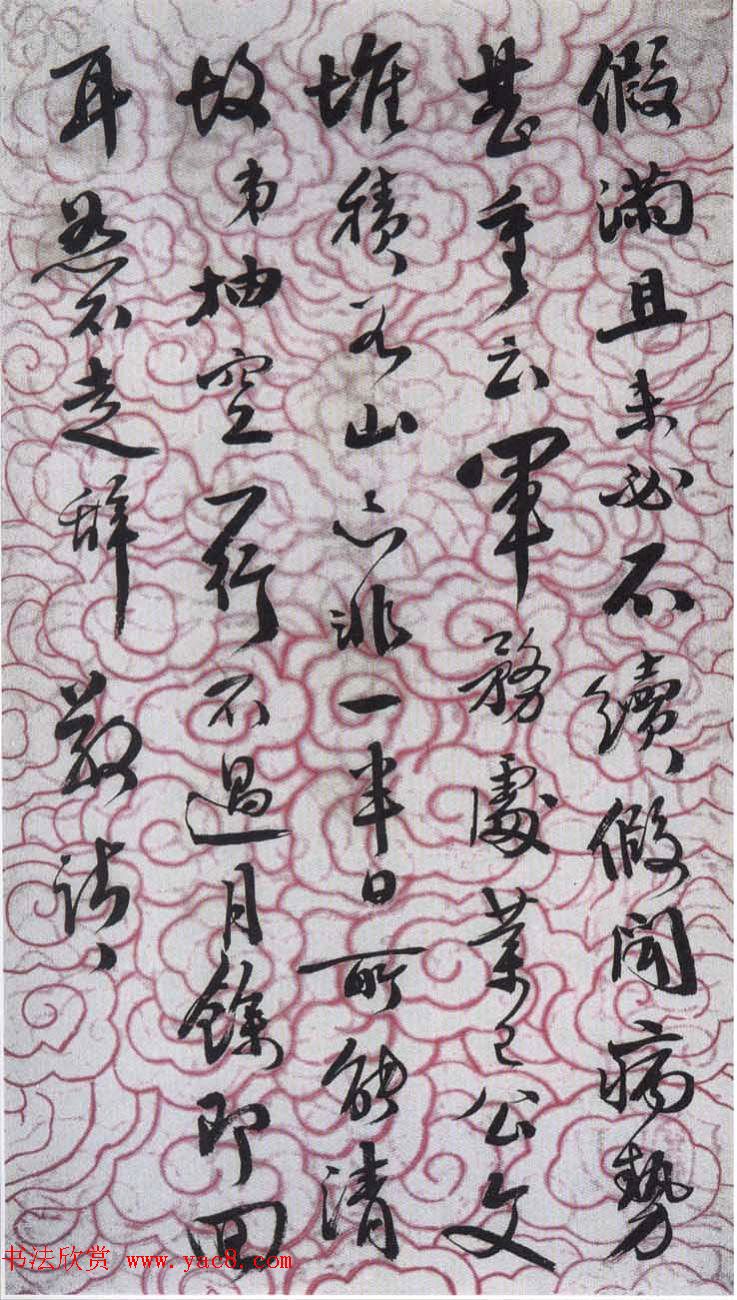 假滿且未必不續假聞病勢
甚重云軍務處業已公文
堆積如山亦非一半日所能清
故弟抽空一行不過月餘即回
耳恕不走辭敬請
书法欣赏 www.yac8.com